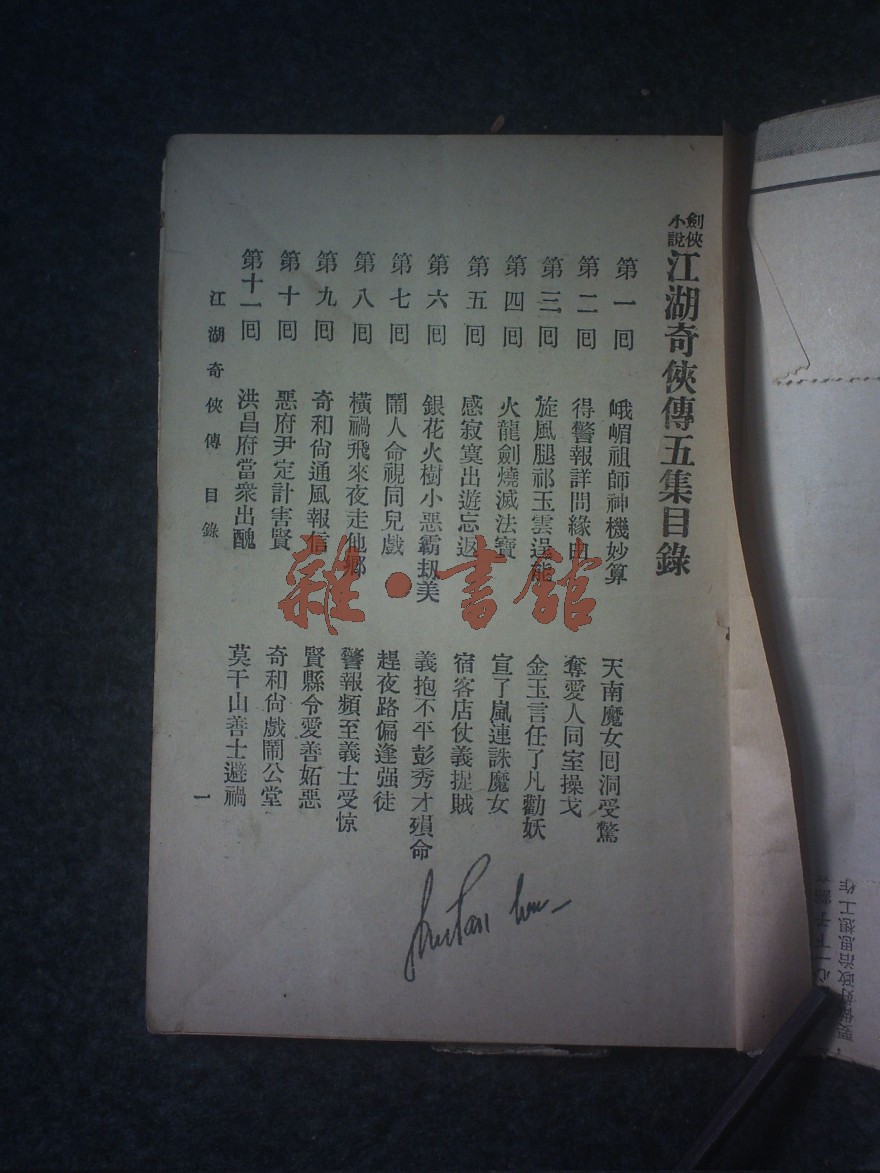 劍俠小說江湖奇俠傳五集目錄
第一囘 峨嵋祖師神機妙算 天南魔女囘洞受驚
第二囘 得警報詳問緣由 奪愛人同室操戈
第三囘 旋風腿祁玉雲逞能 金玉言任了凡勸妖
第四囘 火龍劍燒滅法寶 宣了嵐連誅魔女
第五囘 感寂寞出遊忘返 宿客店仗義捉賊
第六囘 銀花火樹小惡霸刧美 義抱不平彭秀才殞命
第七囘 鬧人命視同兒戲 趕夜路偏逢强徒
第八囘 橫禍飛來夜走他鄉 警報頻至義士受惊
第九囘 奇和尙通風報信 賢縣令愛善妬惡
第十囘 惡府尹定計害賢 奇和尙戲鬧公堂
第十一囘 洪昌府當衆出醜 莫干山善士避禍
江湖奇俠傳 目錄 一
雜·書館
政治思想工作